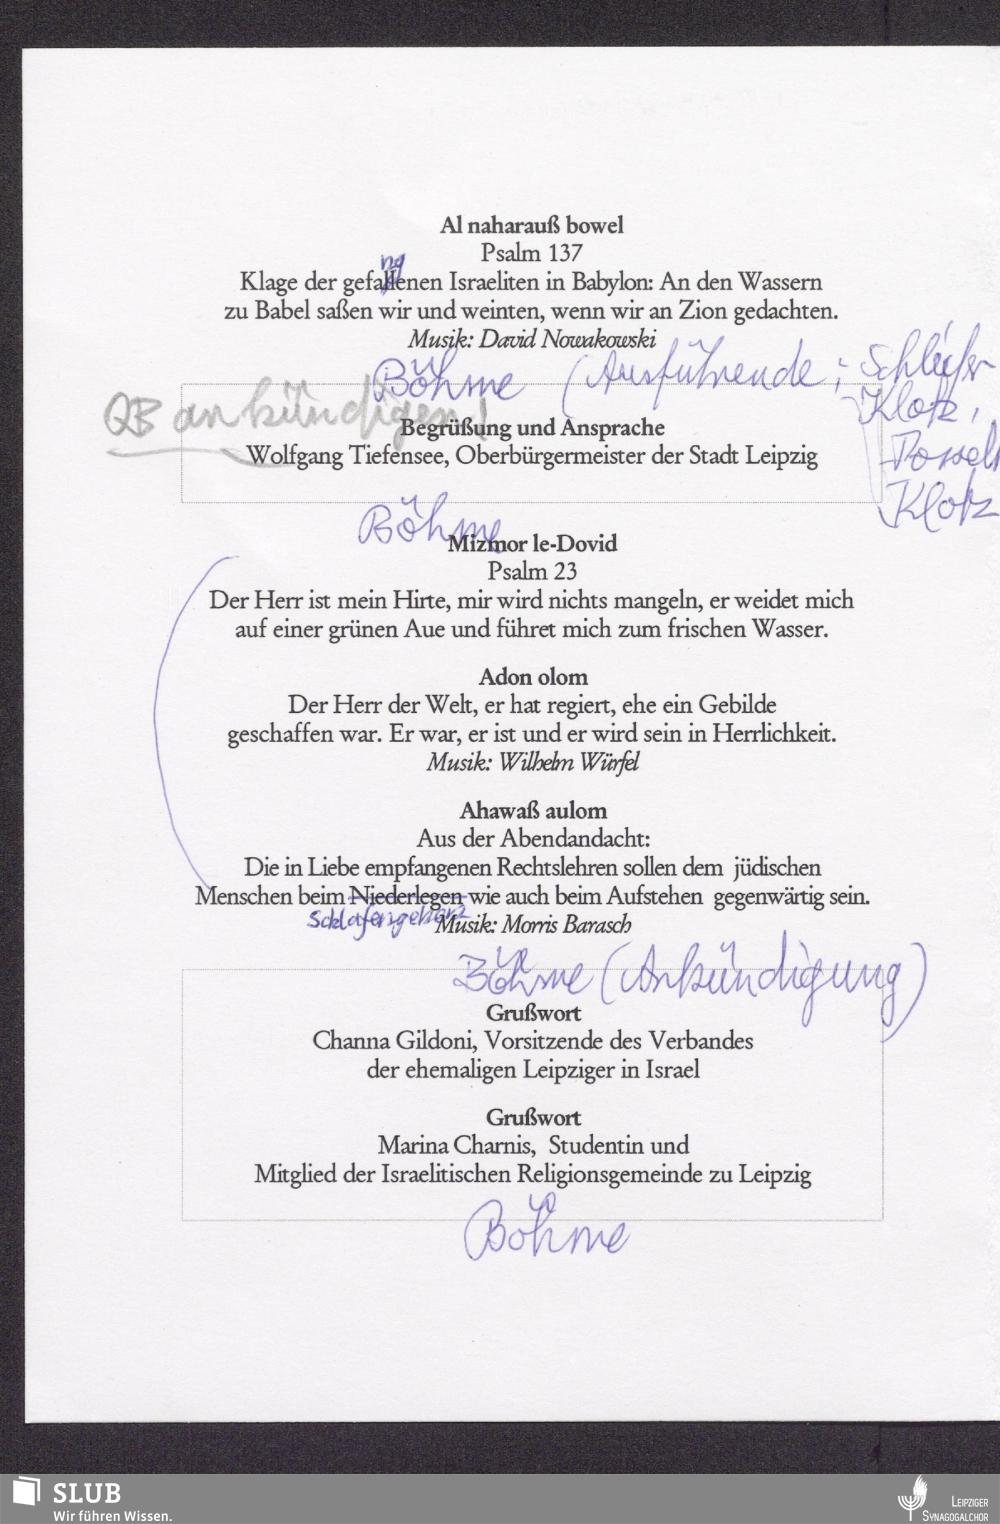 Al naharauß bowel
Psalm 137
ng
Klage der gefallenen Israeliten in Babylon: An den Wassern
zu Babel saßen wir und weinten, wenn wir an Zion gedachten.
Musik: David Nowakowski
Böhme (Ausführende:
Klotz,
Klotz
OB ankündigen!
Begrüßung und Ansprache
Wolfgang Tiefensee, Oberbürgermeister der Stadt Leipzig
Böhme
Mizmor le-Dovid
Psalm 23
Der Herr ist mein Hirte, mir wird nichts mangeln, er weidet mich
auf einer grünen Aue und führet mich zum frischen Wasser.
Adon olom
Der Herr der Welt, er hat regiert, ehe ein Gebilde
geschaffen war. Er war, er ist und er wird sein in Herrlichkeit.
Musik: Wilhelm Würfel
Ahawaß aulom
Aus der Abendandacht:
Die in Liebe empfangenen Rechtslehren sollen dem jüdischen
Menschen beim Niederlegen wie auch beim Aufstehen gegenwärtig sein.
Schlafengehen
Musik: Morris Barasch
Böhme (Ankündigung)
Grußwort
Channa Gildoni, Vorsitzende des Verbandes
der ehemaligen Leipziger in Israel
Grußwort
Marina Charnis, Studentin und
Mitglied der Israelitischen Religionsgemeinde zu Leipzig
Böhme
SLUB
Wir führen Wissen.
Leipziger
Synagogalchor